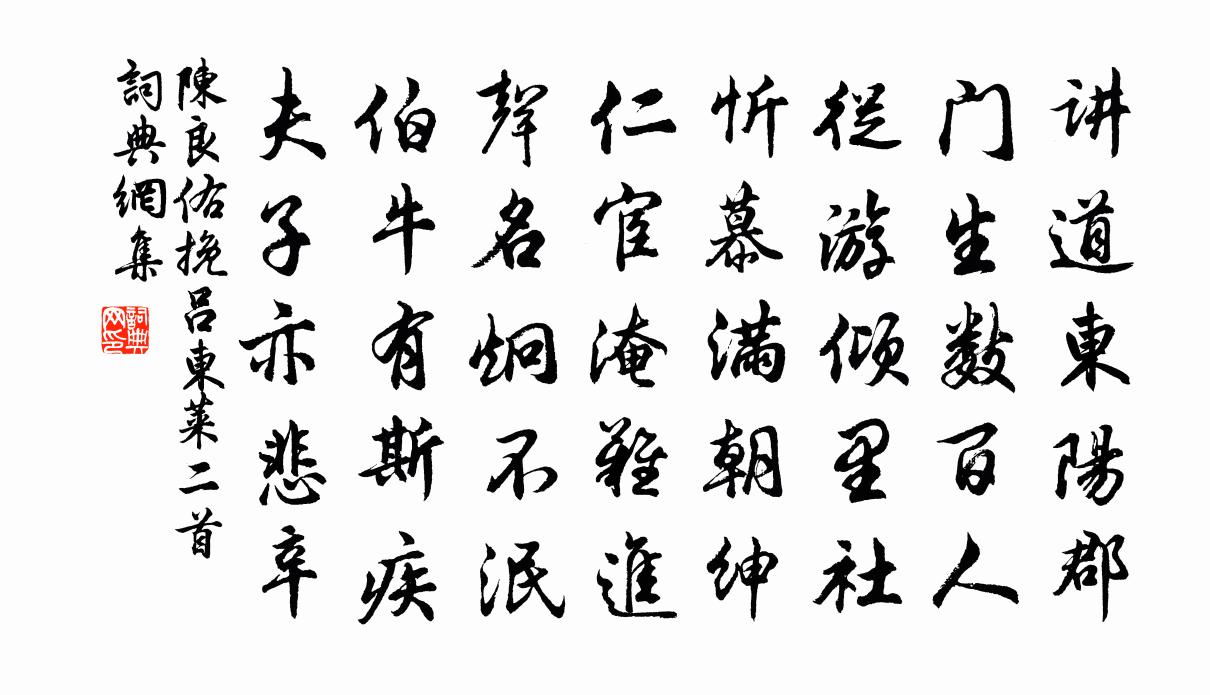 讲道東陽郡
门生數百人
從游傾里社
忻慕滿朝紳
仁宦淹難進
聲名炯不泯
伯牛有斯疾
夫子亦悲辛
陳良佑挽呂東萊二首
詞典網集
詞典网印